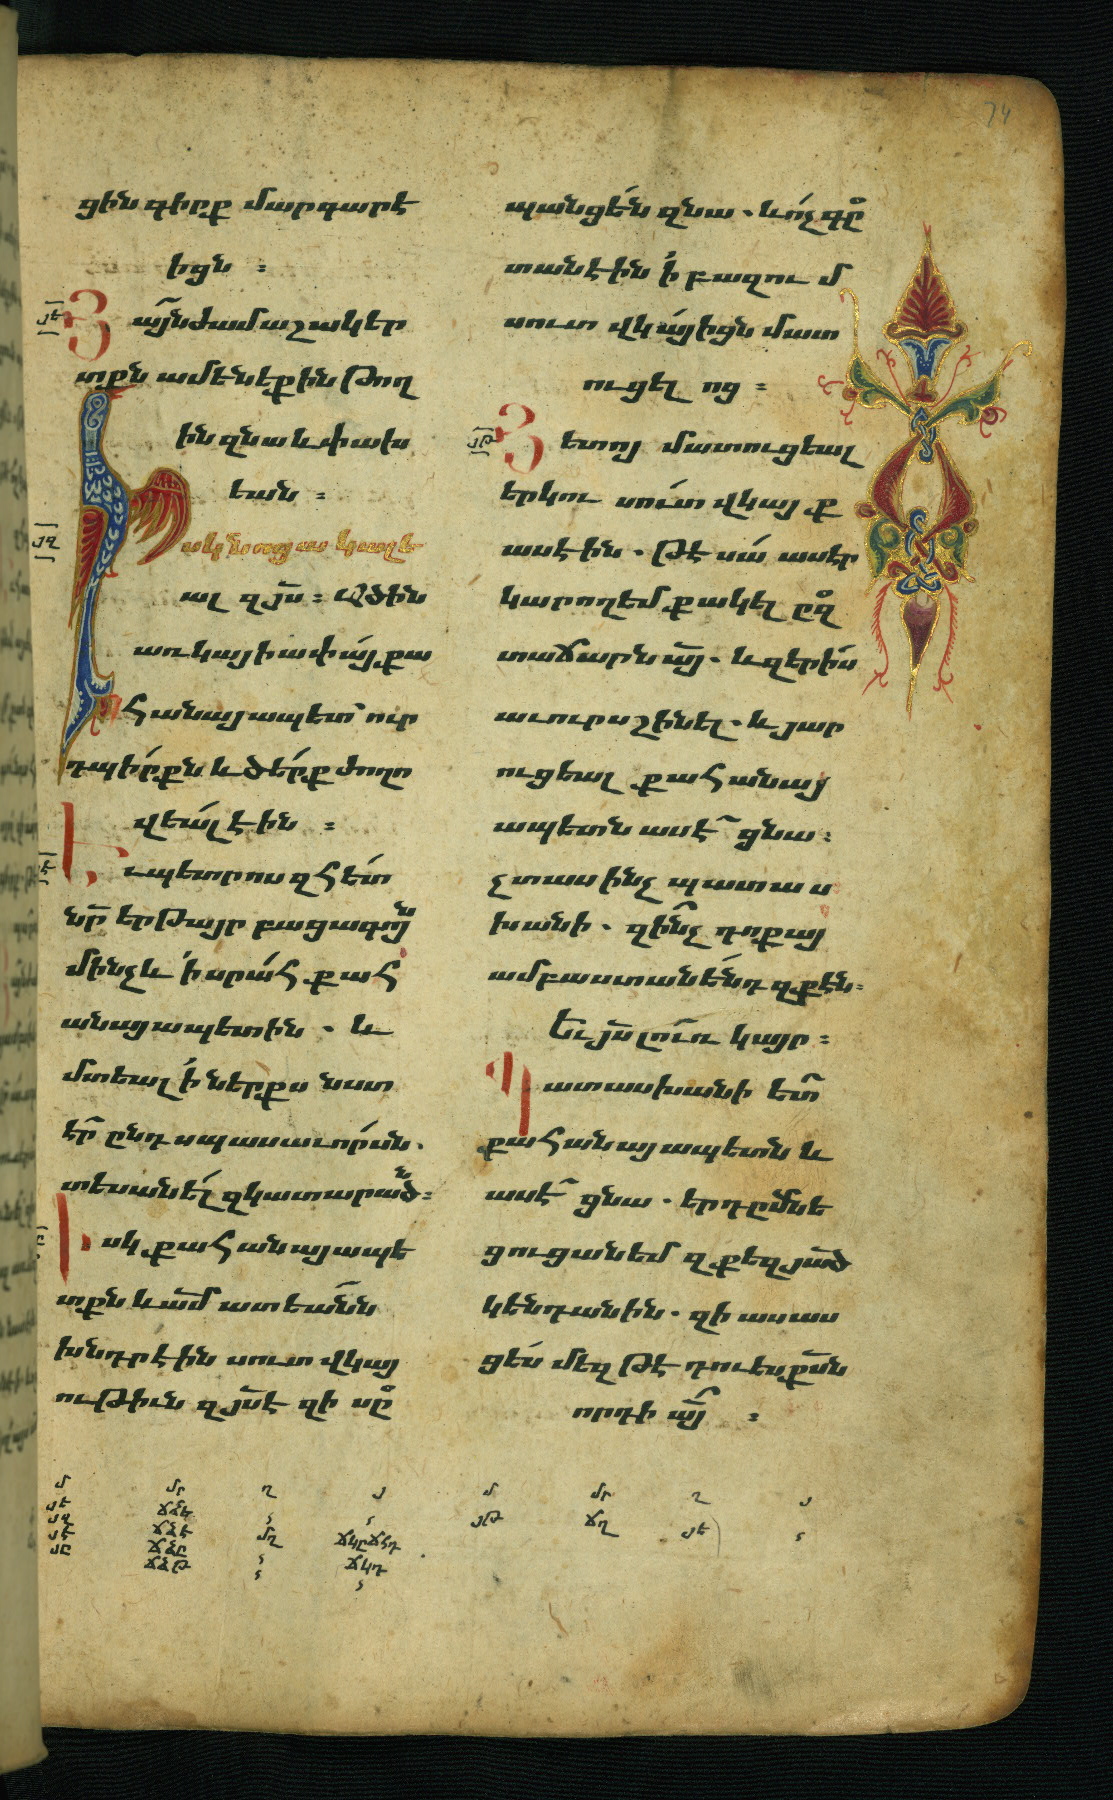 74
ցին գիրք մարգարէ
իցն :
Յայնժամ աշակեր
տքն ամենեքին թող
ին զնա և փախ
եան :
սկ նոցա կալե
ալ զյս : Ածին
առ կայիափայ քա
հանայապետ՝ ուր
դպիրքն և ծերք ժողո
վեալ էին :
Եւ պետրոս զհետ
նր երթայր բացագոյն
մինչև ՛ի սրահ քահ
անայապետին . և
մտեալ ՛ի ներքս նստ
էր ընդ սպասաւորսն .
տեսանել զկատարած՛ն :
Իսկ քահանայապե
տքն և ամ ատեանն
խնդրէին սուտ վկայ
ութիւն զյսէ զի սպ
պանցեն զնա . և ոչ գը
տանէին ՛ի բազու մ
սուտ վկայիցն մատ
ուցել ոց :
Յետոյ մատուցեալ
երկու սուտ վկայ ք
ասէին . թէ սա ասէր
կարող եմ քակել ըզ
տաճարն այ . և զերիս
աւուրս շինել . և յար
ուցեալ քահանայ
ապետն ասէ՝ ցնա :
չտաս ինչ պատաս
խանի . զինչ դոքայ
ամբաստանենդ զքէն :
Եւ յս լուռ կայր :
Պատասխանի ետ
քահանայապետն և
ասէ՝ ցնա . երդըմնե
ցուցանեմ զքեզ յած
կենդանին . զի ասաս
ցես մեզ թէ դու ես քսն
որդի այ :
մ մր ղ յ մ մր ղ յ